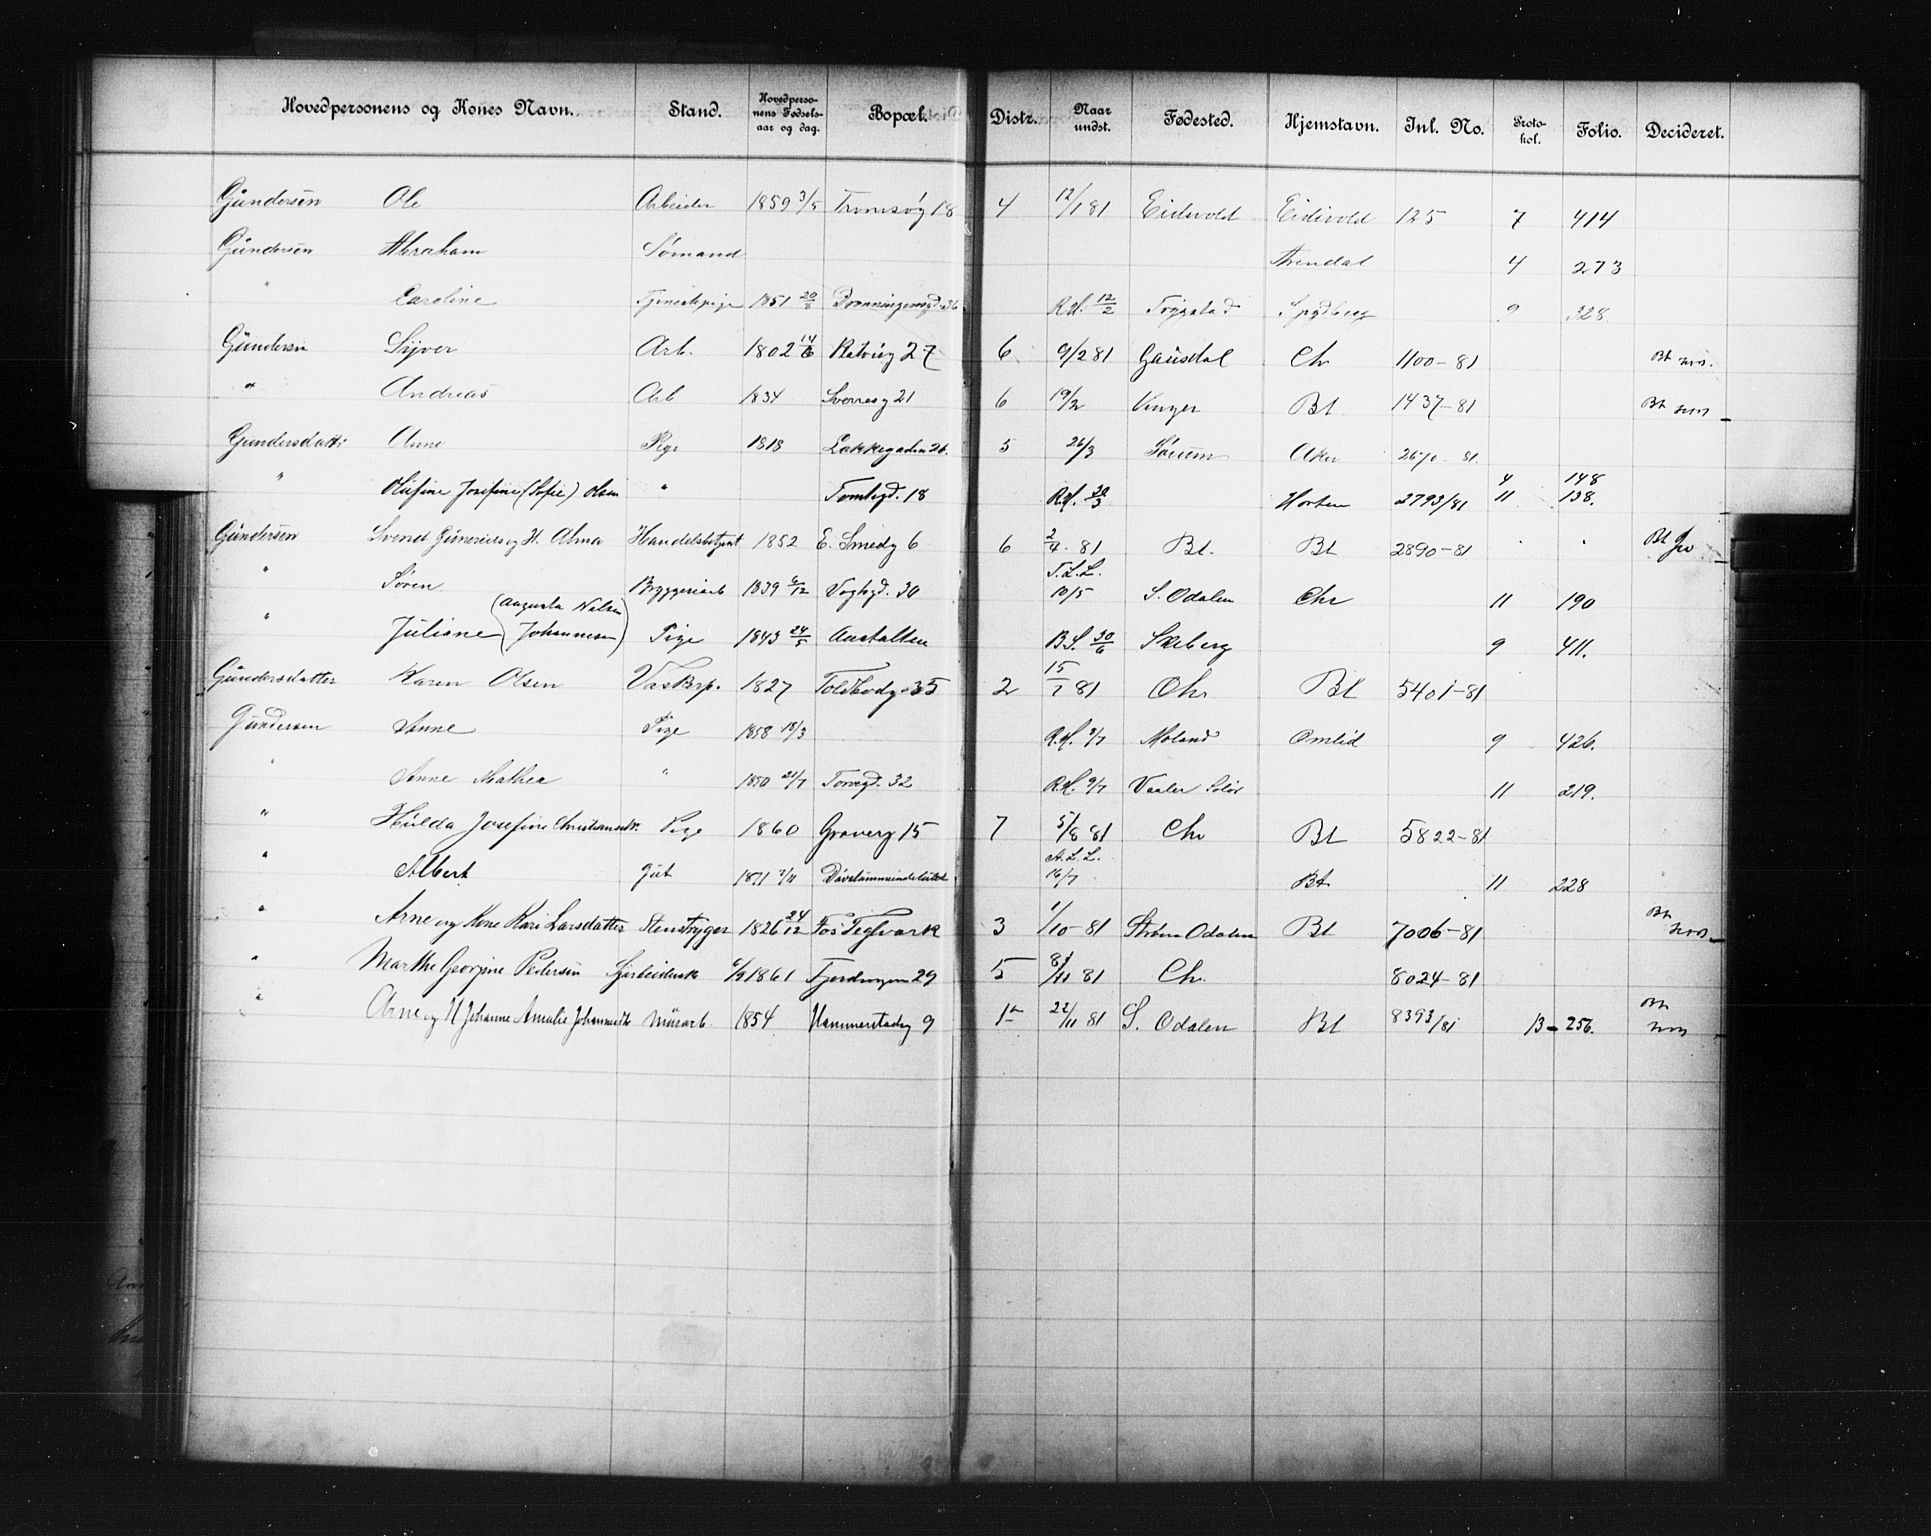 Hovedpersonens og Kones Navn. Stand. Hovedperso-nens Fødsels-aar og dag. Bopæl. Distr. Naar undst. Fødested. Hjemstavn. Inl. No. Proto-kol. Folio. Decideret.
Gundersen Ole Arbeider 1859 3/5 Tromsøg 18 4 12/1 81 Eidsvold Eidsvold 125 7 414
Gundersen Abraham Sømand Arendal 4 273
" Caroline Tjenestepige 1851 20/8 Dronningensgd. 36 R.H. 12/2 Trygstad Spydberg 9 328
Gundersen Syver Arb. 1802 14/6 27 6 9/2 81 Gausdal Chr 1100-81 Bt
" Andreas Arb 1834 Sverresg 21 6 19/2 Vinger Bt 1437-81 Bt
Gundersdatter Anne Pige 1818 Lakkegaden 26. 5 26/3 Sørum Aker 81.
" Olufine Josefine (Sofie) Olsen " Tomtegd. 18 R.H. 30/3 Horten 2793/81 4 11 148 138.
Gundersen Svend Gunerius og H. Alma Handelsbetjent 1852 E. Smedg 6 6 2/4 81 Bt. Bt 2890-81 " " Bt
" Søren Bryggeriarb 1839 6/12 Vogtsgd. 30 T.L.L. 10/5 S. Odalen Chr 11 190
" Juliane (Augusta Nilsen Johannesen) Pige 1843 24/5 Anstalten B.S. 30/6 Skeberg 9 411.
Gundersdatter Karen Olsen Vaskerp. 1827 Toldbodg 35 2 15/7 81 Chr. Bt 5401-81
Gundersen Anne Pige 1858 18/3 R.H. 9/7 Moland Omlid 9 426.
" Anne Mathea " 1850 21/7 Torvgd. 32 R.H. 9/7 Vaaler Solør 11 219.
" Hulda Josefine Christiansdtr. Pige 1860 Graverg 15 7 5/8 81 Chr Bt 5822-81
" Albert Gut 1871 7/11 Døvstummeinstitutet A.L.L. 16/7 Bt 11 228
" Arne og Kone Kari Larsdatter Stenbryger 1826 24/12 Fos Teglværk 3 1/10-81 Strøm Odalen Bt 7006-81 Bt
" Marthe Georgine Pedersen 6/9 1861 Fjerdingen 29 5 8/11 81 Chr. 8024-81
" Arne og H Johanne Amalie Johannesdtr Murarb 1854 Hammerstadg 9 1a 22/11 81 S. Odalen Bt 8393/81 13 - 256. Bt